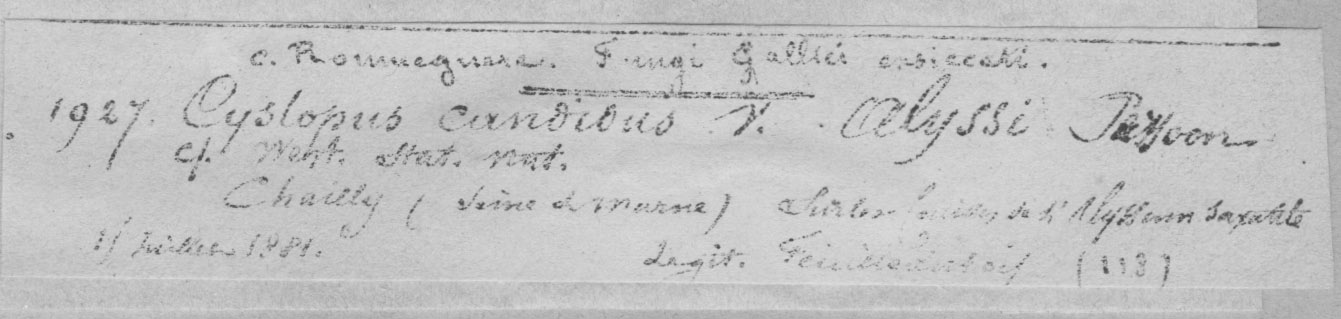 C. Roumeguere. Fungi Gallici exsiccati.
1927. Cystopus candidus V. Alyssi Persoon
Cf. West. Stat. nat.
Chailly (Seine & Marne) Sur les feuilles de l'Alyssum saxatile
Juillet 1881. Legit. Feuilleaubois (118)